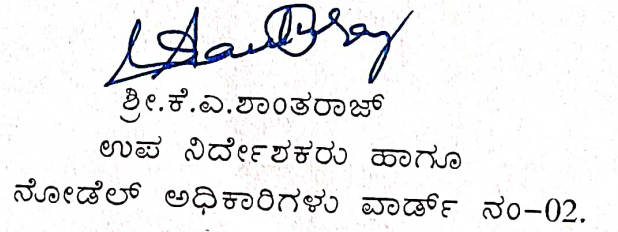 ಶ್ರೀ.ಕೆ.ಎ.ಶಾಂತರಾಜ್
ಉಪ ನಿರ್ದೇಶಕರು ಹಾಗೂ
ನೋಡೆಲ್ ಅಧಿಕಾರಿಗಳು ವಾರ್ಡ್ ನಂ-02.